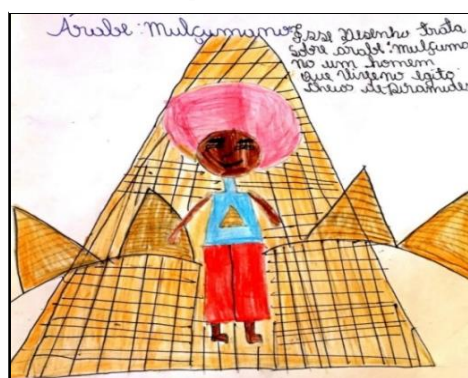 Árabe: Mulçumano
Esse Desenho trata
sobre árabe: mulçuma
no um homem
que vive no egito
cheio de piramides